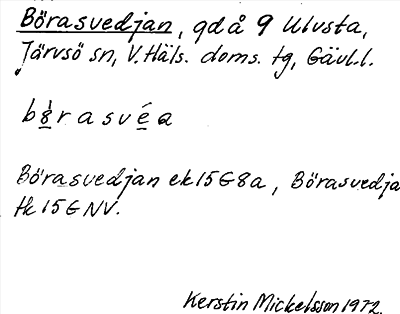 Börasvedjan, gd å 9 Ulvsta,
Järvsö sn, V. Häls. doms. tg, Gävl.l.
bö̀rasvéa
Börasvedjan ek 15G8a, Börasvedja
tk 15G NV.
Kerstin Mickelsson 1972.